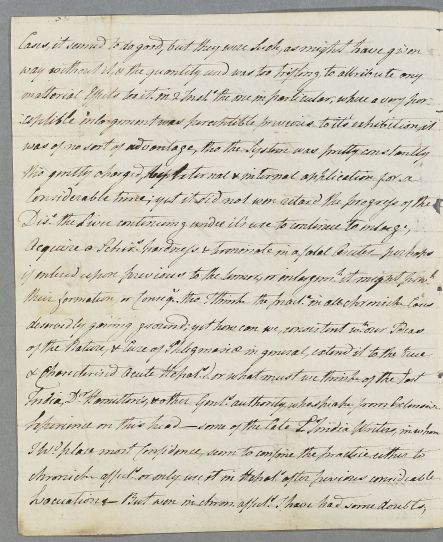 Cases, it seemed to do good, but they were such, as might have given
way without it, & the quantity used was too trifling to attribute any
material Effects to it. In 2 Inst.s the one in particular, where a very per-
=ceptible enlargement was perceptible previous to its exhibition, it
was of no sort of advantage, tho the System was pretty constantly
tho gently charged, by external & internal application for a
Considerable time; yet it did not even retard the progress of the
Dis.e the Liver continuing under its use to continue to enlarge,
Acquire a Schirr.s hardness & terminate in a fatal Ascites perhaps
if entered upon previous to the tumor, or enlargem.t it might prev.t
their formation, or Conseq.s tho I think the pract.e in all chronick Cases
deservedly gaining ground; yet how can we, consistent w.th our Ideas
of the Nature, & Cure of Phlegmasiæ in general, extend it to the true
& Characterised Acute Hepat.s or what must we think of the East
India, D.r Hamilton's, & other Gent.s authority, who speak from Extensive
experience on this head — some of the late E.t India Writers, in whom
I sh.d place most Confidence, seem to confine the practice either to
chronick affect.s or only use it in Hepat.s after previous considerable
Evacuations — But even in chron. affect.s I have had some doubts,